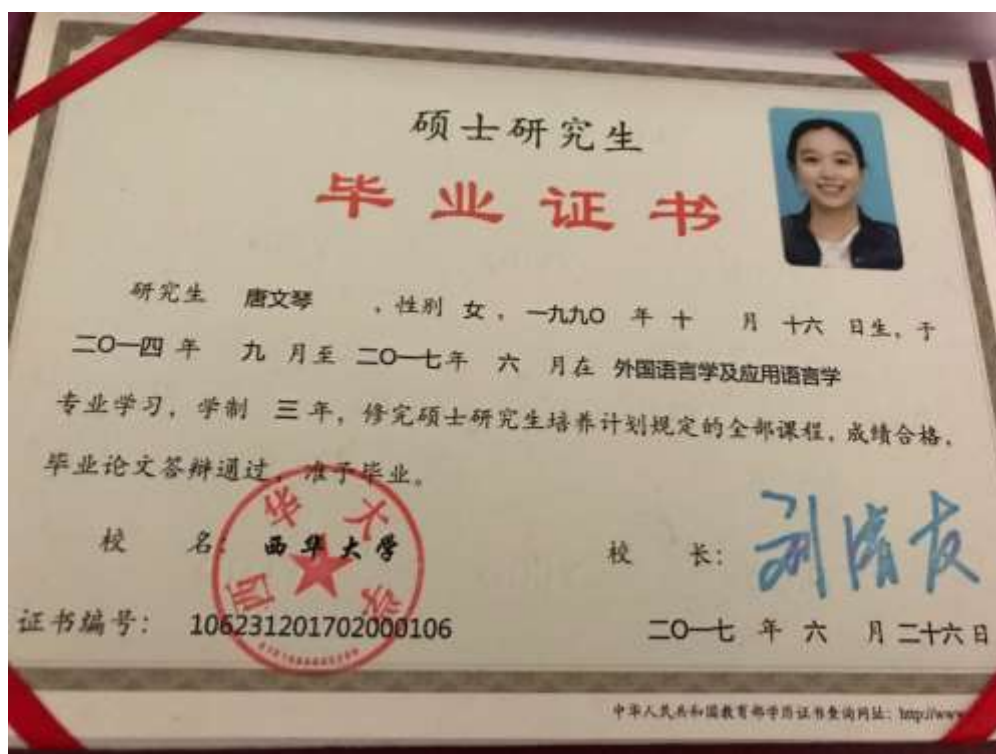 硕士研究生
毕业证书
研究生 唐文琴 ，性别 女 ，一九九〇 年 十 月 十六 日生，于
二〇一四 年 九 月至 二〇一七 年 六 月在 外国语言学及应用语言学
专业学习，学制 三 年，修完硕士研究生培养计划规定的全部课程，成绩合格，
毕业论文答辩通过，准予毕业。
校 名：西华大学
西华大学
校 长：刘清友
证书编号：106231201702000106
二〇一七 年 六 月 二十六 日
中华人民共和国教育部学历证书查询网址：http://www